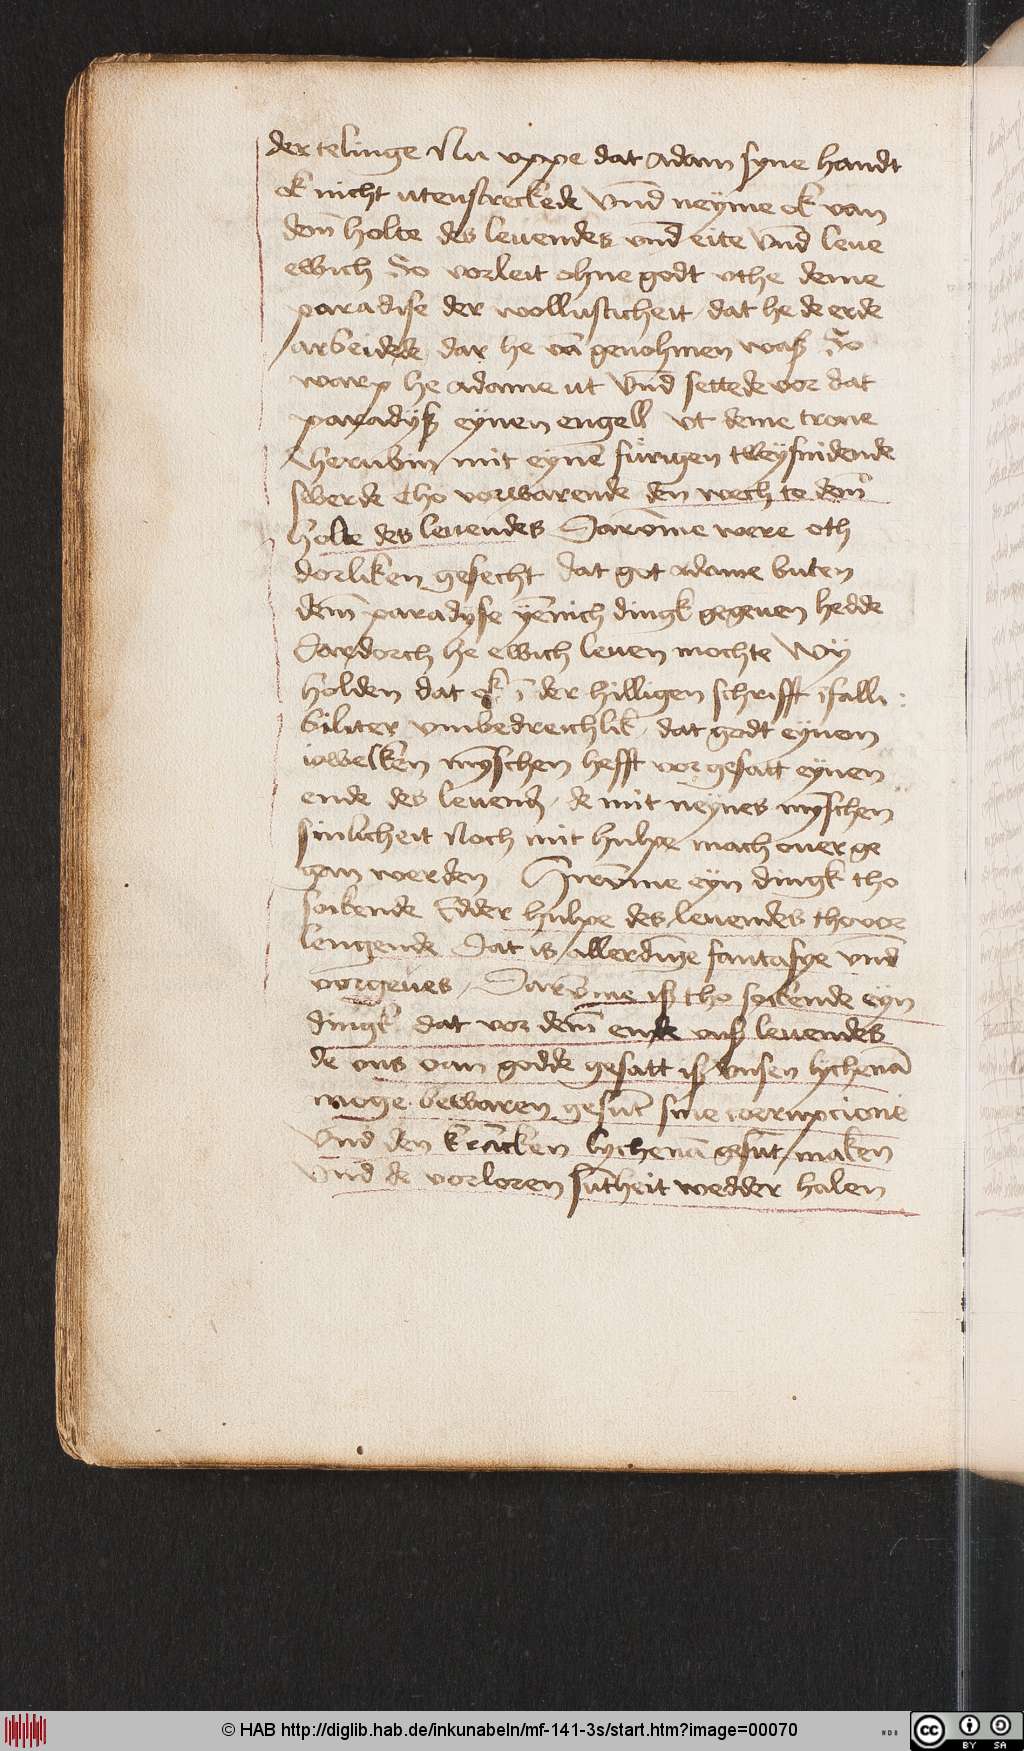 der telinge Nu uppe dat adam syne handt
ok nicht utenstreckede Vnd neyme ok van
dem̄ holte des leuendes vnd eite Vnd leue
ewich So vorleit ohne godt vthe deme
paradise der wollusticheit / dat he de erde
arbeidede dar he vā genohmen waß So
warp he adame ut Vnd settede vor dat
paradyß eynen engell vt deme trone
cherubin mit eynē fürigen tweysnidende
swerde tho vorwarende den wech to dem̄
holte des leuendes Darūme were oth
dorliken gesecht dat got adame buten
dem̄ paradyse yēnich dingk gegeuen hedde
Dardorch he ewich leuen mochte Wy
holden dat ok ī der hilligen schrifft ifalli:
biliter vmbedreichlik / dat godt eynem
iowelken mȳschen hefft vorgesatt eynen
ende des leuendꝭ / de mit neynes mȳschen
sinlicheit Noch mit hulpe mach ouer ge
gan werden Hirūme eyn dingk tho
sokende Edder hulpe des leuendes tho vor
lengende Dat is allerdinge fantasye vnd
vorgeues / Darūme iß tho sokende eyn
dingk dat vor dem̄ ende vnß leuendes
de vns van godde gesatt iß Vnsen lychenā
moge bewaren gesunt sine corrupcione
Vnd den krancken lychenā gesūt / maken
Vnd de vorloren suntheit wedder halen
© HAB http://diglib.hab.de/inkunabeln/mf-141-3s/start.htm?image=00070
cc BY SA